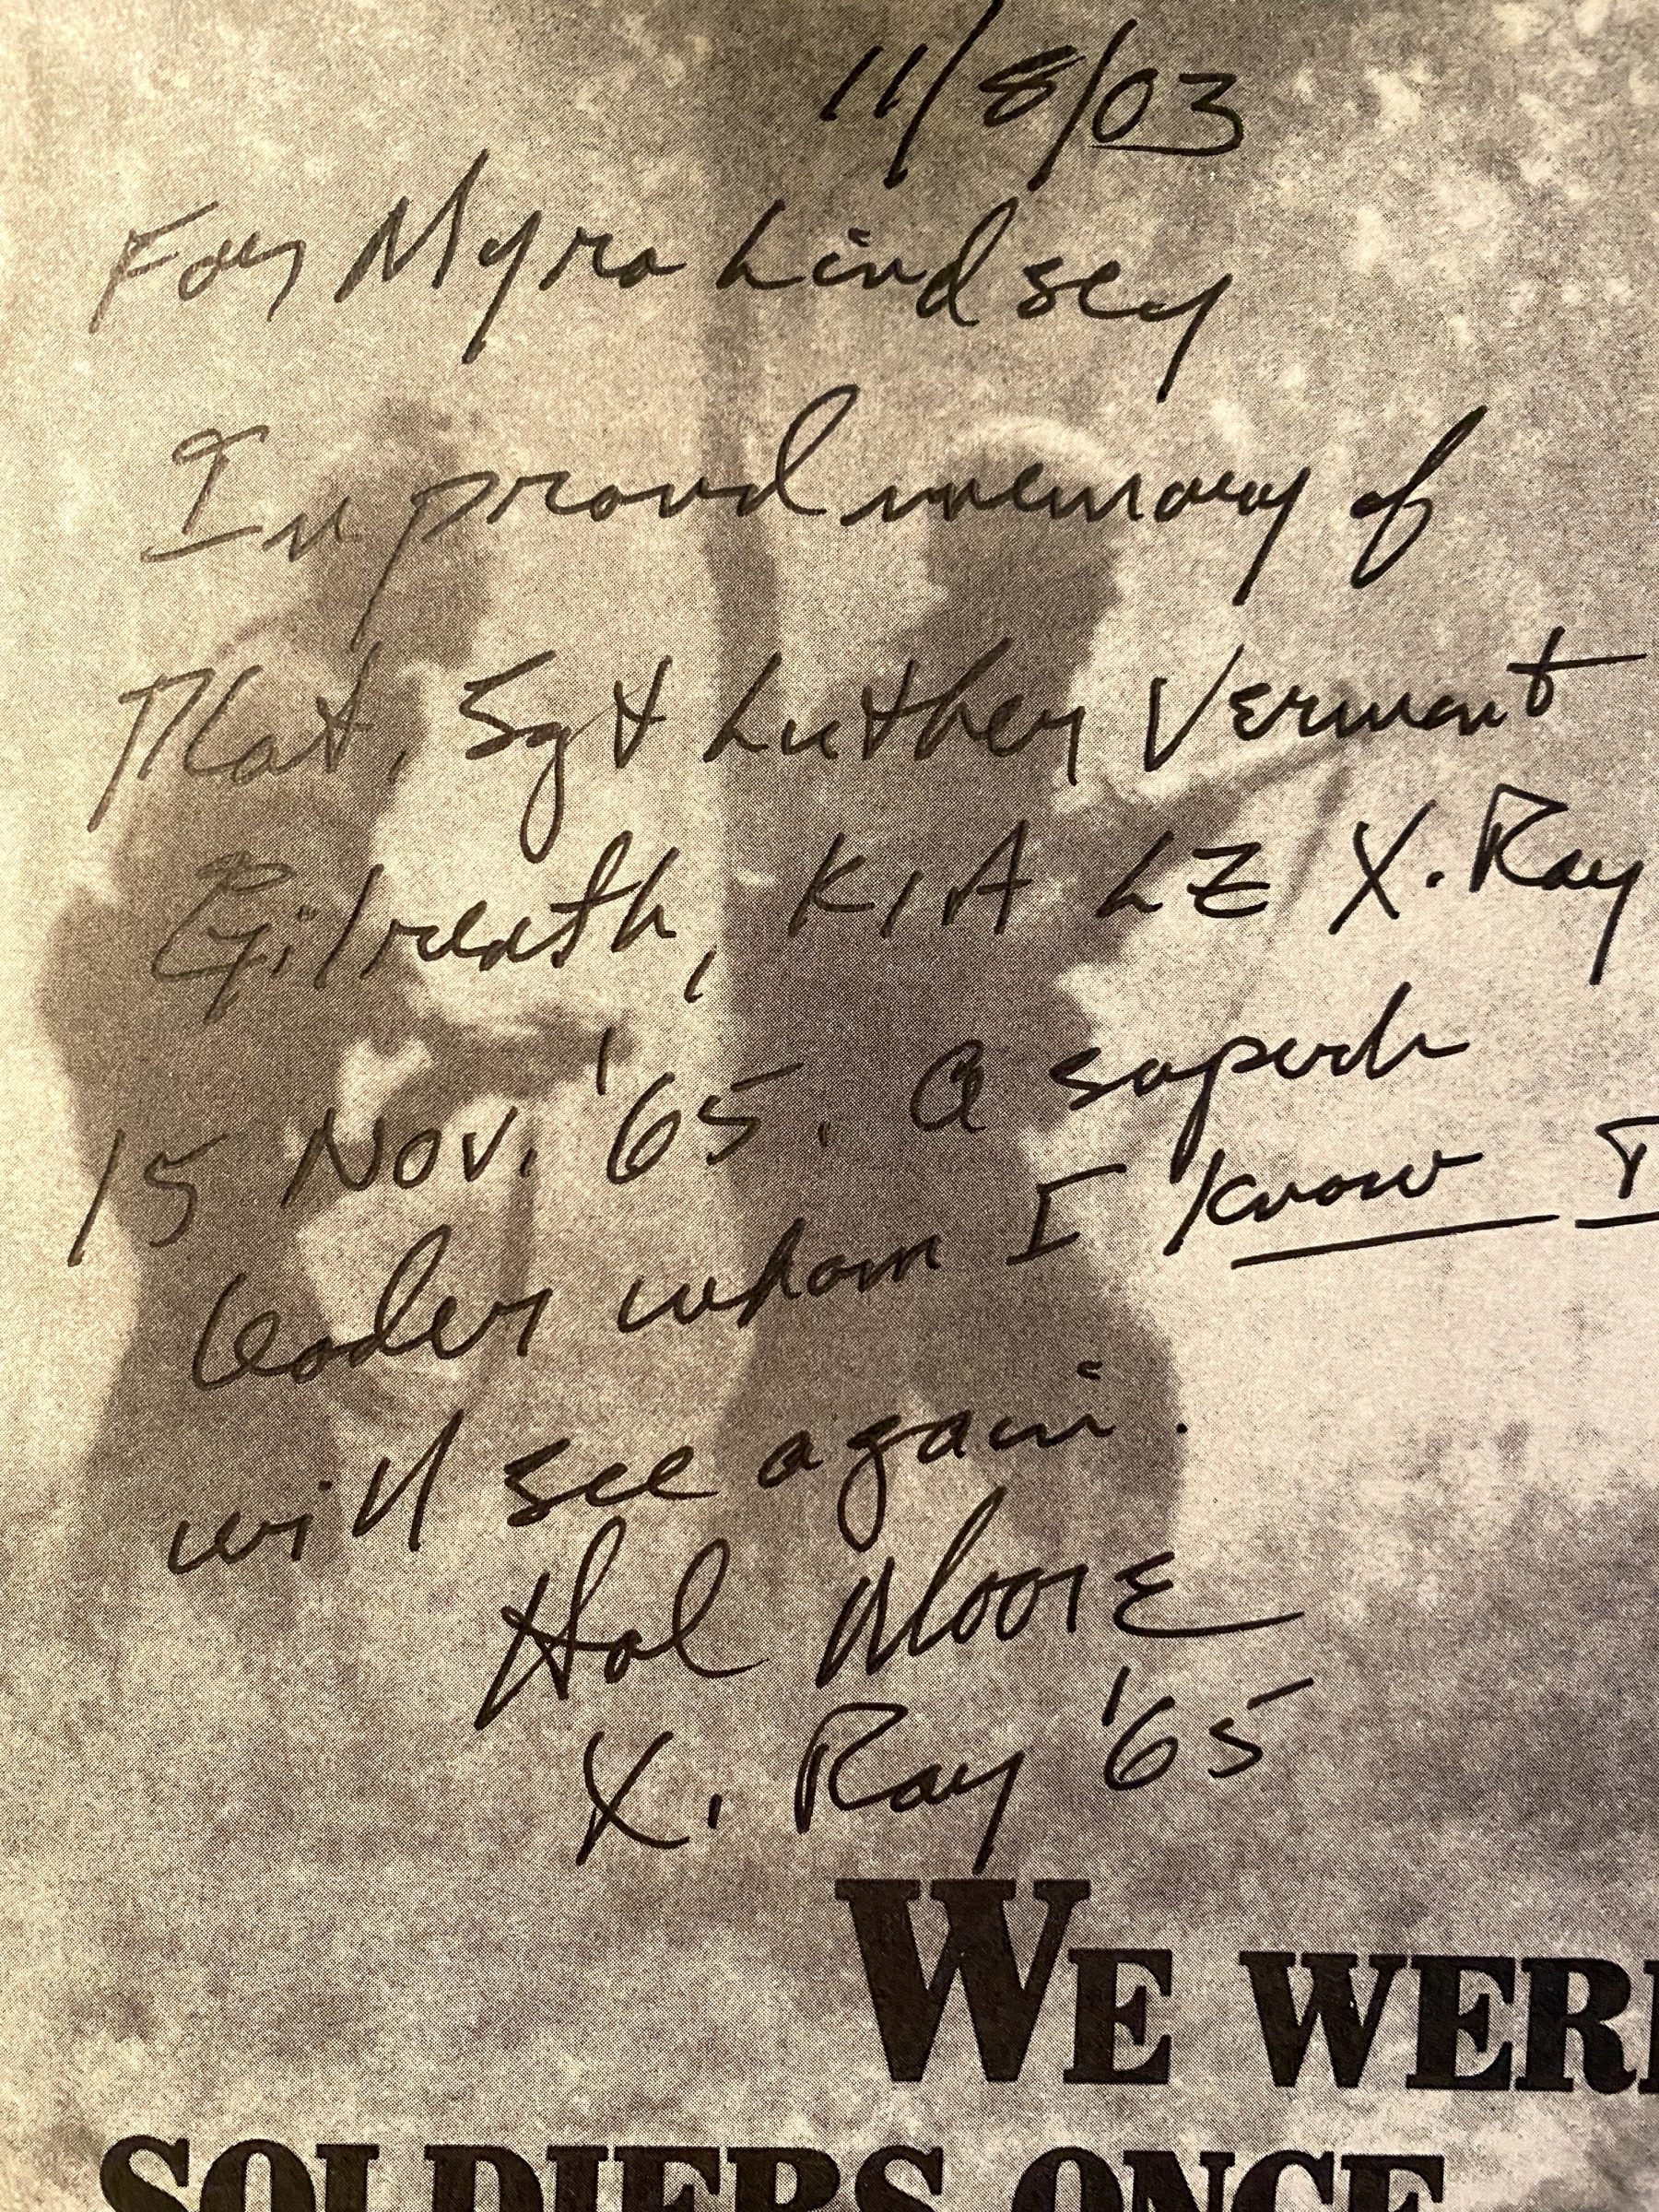 11/8/03
For Myra Lindsey
In proud memory of
Plat. Sgt Luther Vermont
Gilreath, KIA LZ X.Ray
15 Nov. '65. A superb
leader whom I know I
will see again.
Hal Moore
X. Ray '65
WE WERE
SOLDIERS ONCE